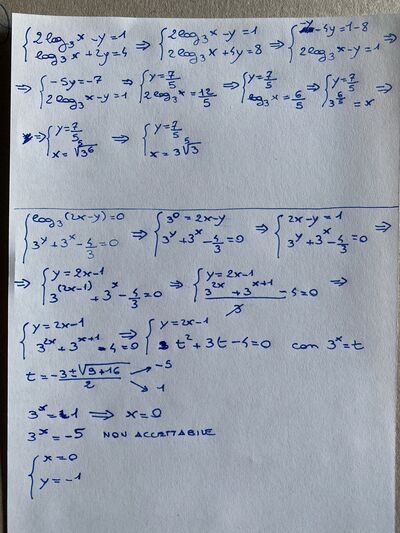 {2log₃x-y=1 ; log₃x+2y=4 ⇒ {2log₃x-y=1 ; 2log₃x+4y=8 ⇒ {-y-4y=1-8 ; 2log₃x-y=1 ⇒
⇒ {-5y=-7 ; 2log₃x-y=1 ⇒ {y=7/5 ; 2log₃x=12/5 ⇒ {y=7/5 ; log₃x=6/5 ⇒ {y=7/5 ; 3^(6/5)=x ⇒
⇒ {y=7/5 ; x=⁵√3⁶ ⇒ {y=7/5 ; x=3⁵√3
{log₃(2x-y)=0 ; 3^y+3^x-4/3=0 ⇒ {3⁰=2x-y ; 3^y+3^x-4/3=0 ⇒ {2x-y=1 ; 3^y+3^x-4/3=0 ⇒
⇒ {y=2x-1 ; 3^(2x-1)+3^x-4/3=0 ⇒ {y=2x-1 ; (3^2x+3^(x+1)-4)/3=0 ⇒
{y=2x-1 ; 3^2x+3^(x+1)-4=0 ⇒ {y=2x-1 ; t²+3t-4=0 con 3^x=t
t=(-3±√(9+16))/2 → -5 → 1
3^x=1 ⇒ x=0
3^x=-5 NON ACCETTABILE
{x=0
y=-1